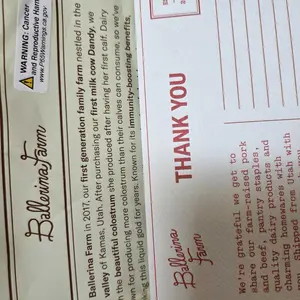 WARNING: Cancer
and Reproductive Harm
www.P65Warnings.ca.gov
Ballerina Farm
Ballerina Farm in 2017, our first generation family farm nestled in the
valley of Kamas, Utah. After purchasing our first milk cow Dandy, we
the beautiful colostrum she produced after having her first calf. Dairy
for producing more colostrum than their calves can consume, so we've
this liquid gold for years. Known for its immunity-boosting benefits,
THANK YOU
Ballerina
Farm
We're grateful we get to
share our farm-raised pork
and beef, pantry staples,
quality dairy products and
charming homewares with
Shipped from Utah with